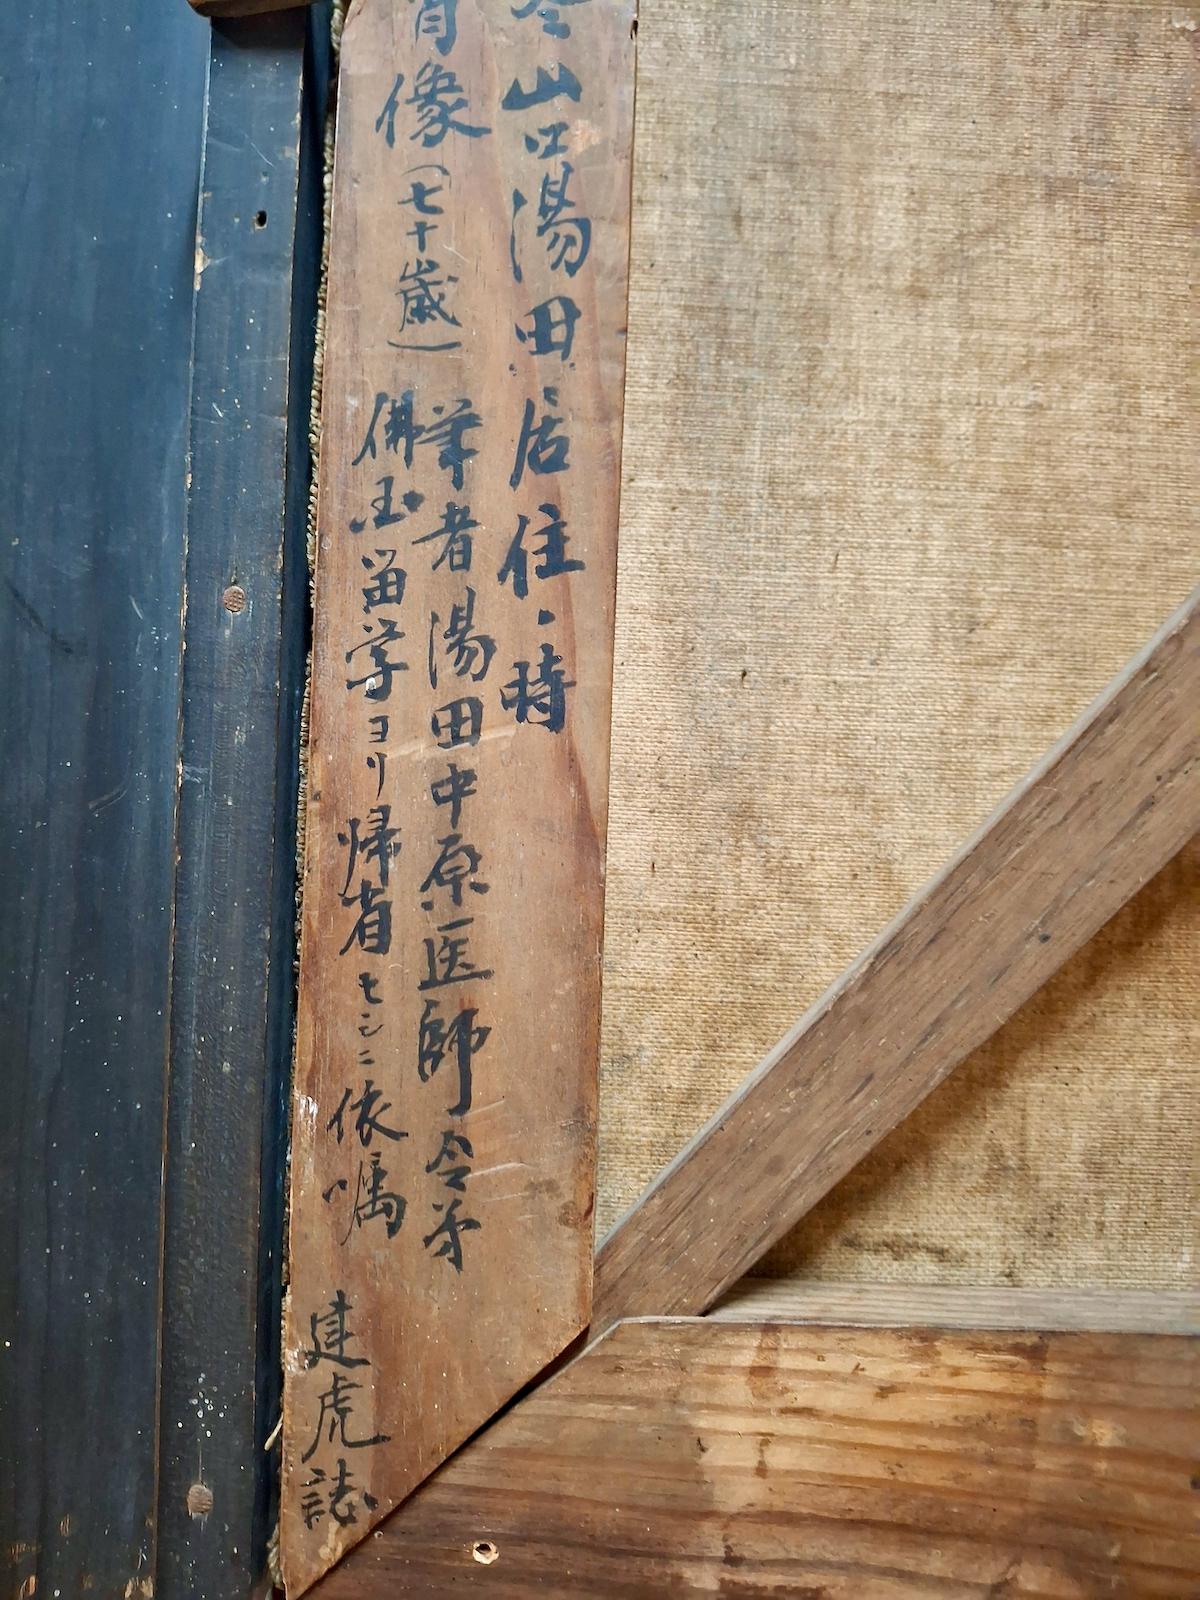 山口湯田居住ノ時
肖像(七十歳)
筆者湯田中原医師令弟
佛国留学ヨリ帰省セシニ依嘱
建虎誌